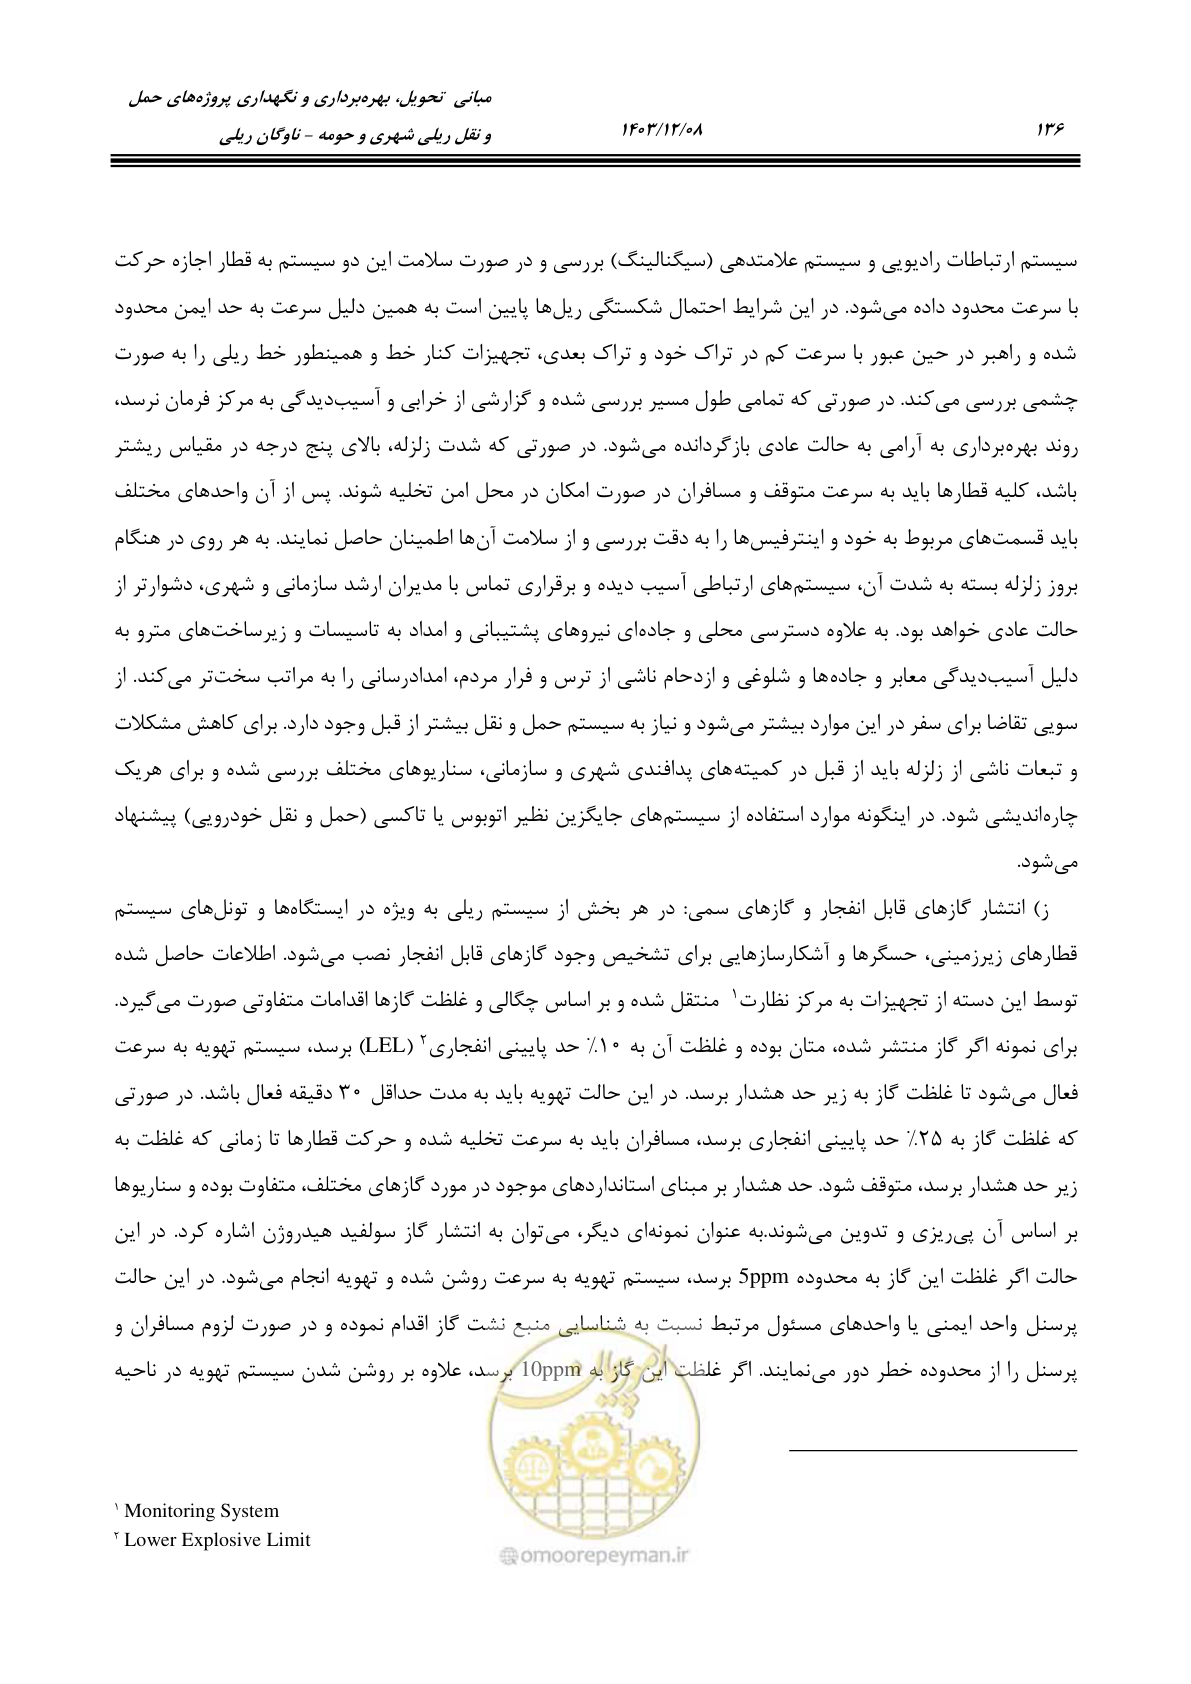 ۱۳۶
۱۴۰۳/۱۲/۰۸
مبانی تحویل، بهره‌برداری و نگهداری پروژه‌های حمل
و نقل ریلی شهری و حومه – ناوگان ریلی
سیستم ارتباطات رادیویی و سیستم علامتدهی (سیگنالینگ) بررسی و در صورت سلامت این دو سیستم به قطار اجازه حرکت
با سرعت محدود داده می‌شود. در این شرایط احتمال شکستگی ریل‌ها پایین است به همین دلیل سرعت به حد ایمن محدود
شده و راهبر در حین عبور با سرعت کم در تراک خود و تراک بعدی، تجهیزات کنار خط و همینطور خط ریلی را به صورت
چشمی بررسی می‌کند. در صورتی که تمامی طول مسیر بررسی شده و گزارشی از خرابی و آسیب‌دیدگی به مرکز فرمان نرسد،
روند بهره‌برداری به آرامی به حالت عادی بازگردانده می‌شود. در صورتی که شدت زلزله، بالای پنج درجه در مقیاس ریشتر
باشد، کلیه قطارها باید به سرعت متوقف و مسافران در صورت امکان در محل امن تخلیه شوند. پس از آن واحدهای مختلف
باید قسمت‌های مربوط به خود و اینترفیس‌ها را به دقت بررسی و از سلامت آن‌ها اطمینان حاصل نمایند. به هر روی در هنگام
بروز زلزله بسته به شدت آن، سیستم‌های ارتباطی آسیب دیده و برقراری تماس با مدیران ارشد سازمانی و شهری، دشوارتر از
حالت عادی خواهد بود. به علاوه دسترسی محلی و جاده‌ای نیروهای پشتیبانی و امداد به تاسیسات و زیرساخت‌های مترو به
دلیل آسیب‌دیدگی معابر و جاده‌ها و شلوغی و ازدحام ناشی از ترس و فرار مردم، امدادرسانی را به مراتب سخت‌تر می‌کند. از
سویی تقاضا برای سفر در این موارد بیشتر می‌شود و نیاز به سیستم حمل و نقل بیشتر از قبل وجود دارد. برای کاهش مشکلات
و تبعات ناشی از زلزله باید از قبل در کمیته‌های پدافندی شهری و سازمانی، سناریوهای مختلف بررسی شده و برای هریک
چاره‌اندیشی شود. در اینگونه موارد استفاده از سیستم‌های جایگزین نظیر اتوبوس یا تاکسی (حمل و نقل خودرویی) پیشنهاد
می‌شود.
ز) انتشار گازهای قابل انفجار و گازهای سمی: در هر بخش از سیستم ریلی به ویژه در ایستگاه‌ها و تونل‌های سیستم
قطارهای زیرزمینی، حسگرها و آشکارسازهایی برای تشخیص وجود گازهای قابل انفجار نصب می‌شود. اطلاعات حاصل شده
توسط این دسته از تجهیزات به مرکز نظارت۱ منتقل شده و بر اساس چگالی و غلظت گازها اقدامات متفاوتی صورت می‌گیرد.
برای نمونه اگر گاز منتشر شده، متان بوده و غلظت آن به ۱۰٪ حد پایینی انفجاری۲ (LEL) برسد، سیستم تهویه به سرعت
فعال می‌شود تا غلظت گاز به زیر حد هشدار برسد. در این حالت تهویه باید به مدت حداقل ۳۰ دقیقه فعال باشد. در صورتی
که غلظت گاز به ۲۵٪ حد پایینی انفجاری برسد، مسافران باید به سرعت تخلیه شده و حرکت قطارها تا زمانی که غلظت به
زیر حد هشدار برسد، متوقف شود. حد هشدار بر مبنای استانداردهای موجود در مورد گازهای مختلف، متفاوت بوده و سناریوها
بر اساس آن پی‌ریزی و تدوین می‌شوند.به عنوان نمونه‌ای دیگر، می‌توان به انتشار گاز سولفید هیدروژن اشاره کرد. در این
حالت اگر غلظت این گاز به محدوده 5ppm برسد، سیستم تهویه به سرعت روشن شده و تهویه انجام می‌شود. در این حالت
پرسنل واحد ایمنی یا واحدهای مسئول مرتبط نسبت به شناسایی منبع نشت گاز اقدام نموده و در صورت لزوم مسافران و
پرسنل را از محدوده خطر دور می‌نمایند. اگر غلظت این گاز به 10ppm برسد، علاوه بر روشن شدن سیستم تهویه در ناحیه
امور پیمان
۱ Monitoring System
۲ Lower Explosive Limit
@omoorepeyman.ir